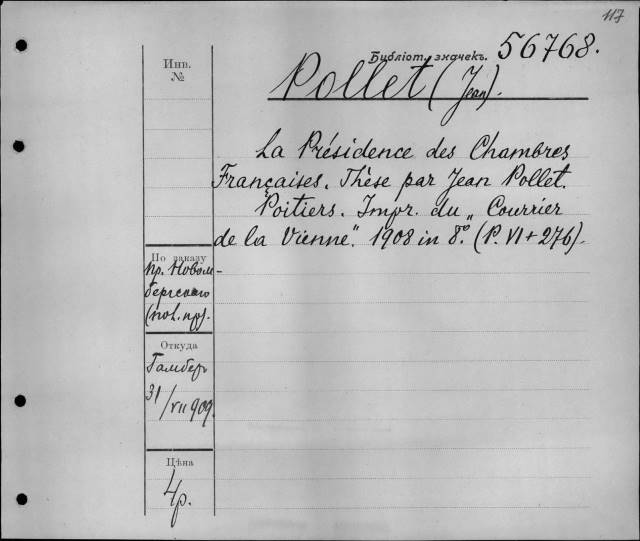 117
Библіот. значекъ. 56768.
Инв.
№
Pollet (Jean).
La Présidence des Chambres
Françaises. Thèse par Jean Pollet.
Poitiers. Impr. du „Courrier
de la Vienne". 1908 in 8.º (P. VI + 276).
По заказу
пр. Новом-
бергскаго
(пол. пр).
Откуда
Гамберъ
31/VII 909.
Цѣна
4р.